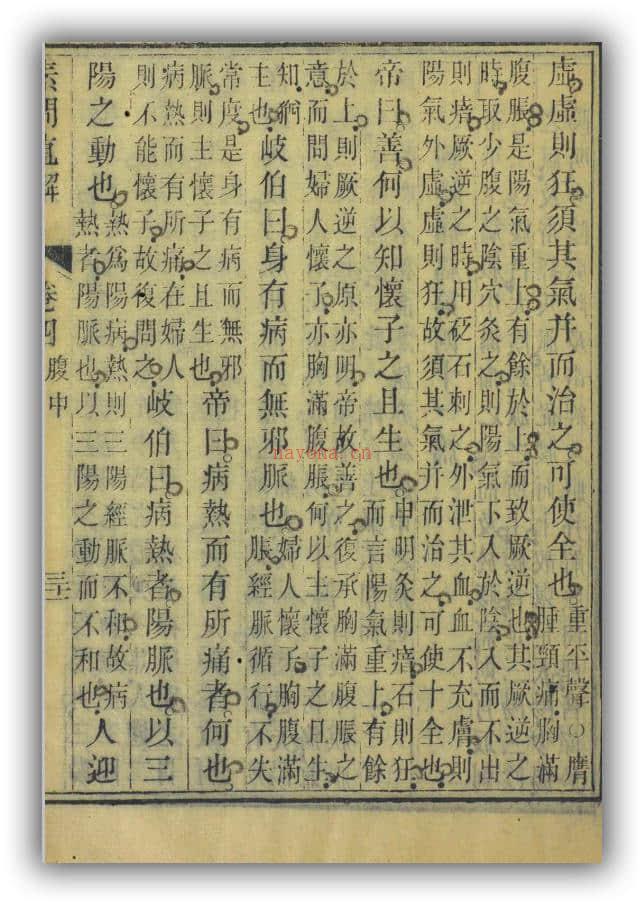 虛虛則狂須其氣并而治之可使全也重平聲○膺
腫頸痛胸滿
腹脹是陽氣重上有餘於上而致厥逆也其厥逆之
時取少腹之陰穴灸之則陽氣下入於陰入而不出
則瘖厥逆之時用砭石刺之外泄其血血不充膚則
陽氣外虛虛則狂故須其氣并而治之可使十全也
帝曰善何以知懷子之且生也申明灸則瘖石則狂
而言陽氣重上有餘
於上則厥逆之原亦明帝故善之復承胸滿腹脹之
意而問婦人懷子亦胸滿腹脹何以主懷子之且生
知
主也岐伯曰身有病而無邪脈也婦人懷子胸腹滿
脹經脈循行不失
常度是身有病而無邪
脈則主懷子之且生也帝曰病熱而有所痛者何也
病熱而有所痛在婦人
則不能懷子故復問之岐伯曰病熱者陽脈也以三
陽之動也熱爲陽病熱則三陽經脈不和故病
熱者陽脈也以三陽之動而不和也人迎
素問直解 卷四 腹中
nayona.cn